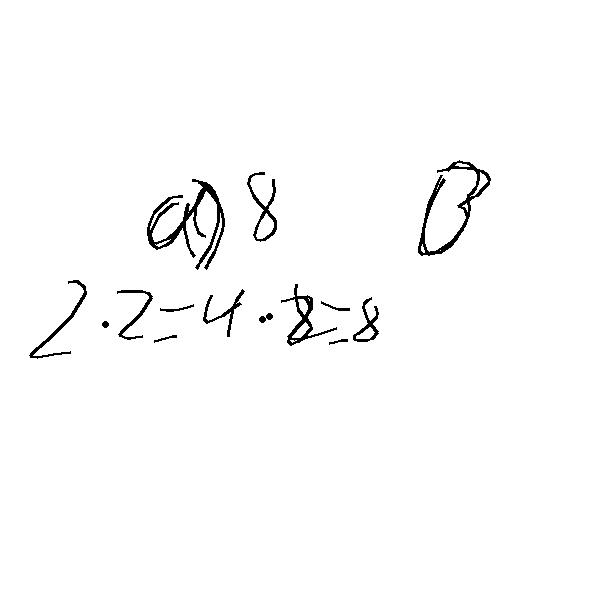 a) 8 B
2·2=4·2=8